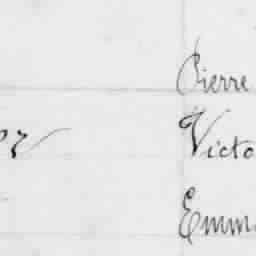 Pierre
Victo
Emma